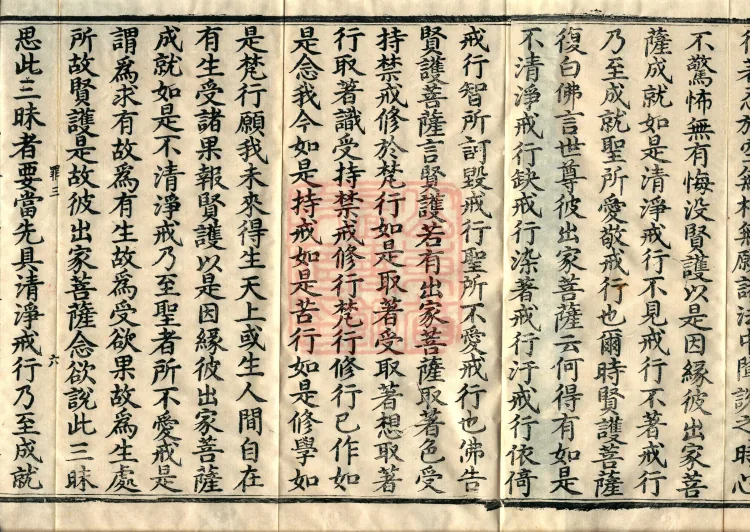 空無相無願諸法中
說之時心
不驚怖無有悔没賢護以是因緣彼出家菩
薩成就如是清淨戒行不見戒行不著戒行
乃至成就聖所愛敬戒行也爾時賢護菩薩
復白佛言世尊彼出家菩薩云何得有如是
不清淨戒行缺戒行染著戒行汙戒行依倚
戒行智所訶毀戒行聖所不愛戒行也佛告
賢護菩薩言賢護若有出家菩薩取著色受
持禁戒修於梵行如是取著受取著想取著
行取著識受持禁戒修行梵行修行已作如
是念我今如是持戒如是苦行如是修學如
是梵行願我未來得生天上或生人間自在
有生受諸果報賢護以是因緣彼出家菩薩
成就如是不清淨戒乃至聖者所不愛戒是
謂爲求有故爲有生故爲受欲果故爲生處
所故賢護是故彼出家菩薩念欲說此三昧
罪三 六
思此三昧者要當先具清淨戒行乃至成就